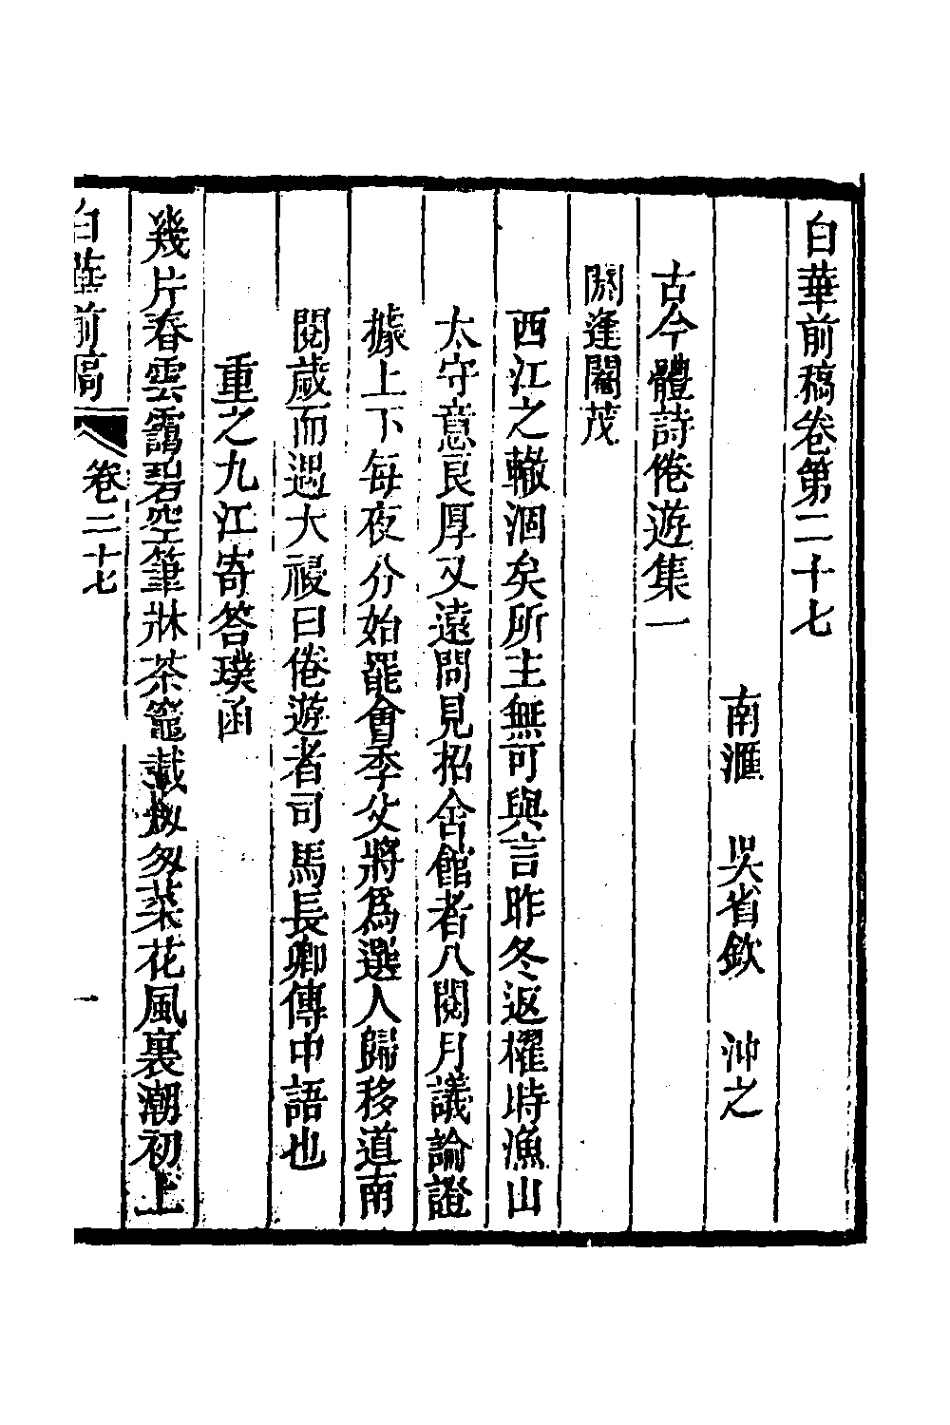 白華前稿卷第二十七
南滙　吳省欽　沖之
古今體詩倦遊集一
閼逢閹茂
西江之轍涸矣所主無可與言昨冬返櫂時漁山
太守意良厚又遠問見招舍館者八閱月議論證
據上下每夜分始罷會季父將爲選人歸移道南
閱歲而遇大祲曰倦遊者司馬長卿傳中語也
重之九江寄答璞函
幾片春雲靄碧空筆牀茶竈載匆匆菜花風裏潮初上
白華前稿　卷二十七　一